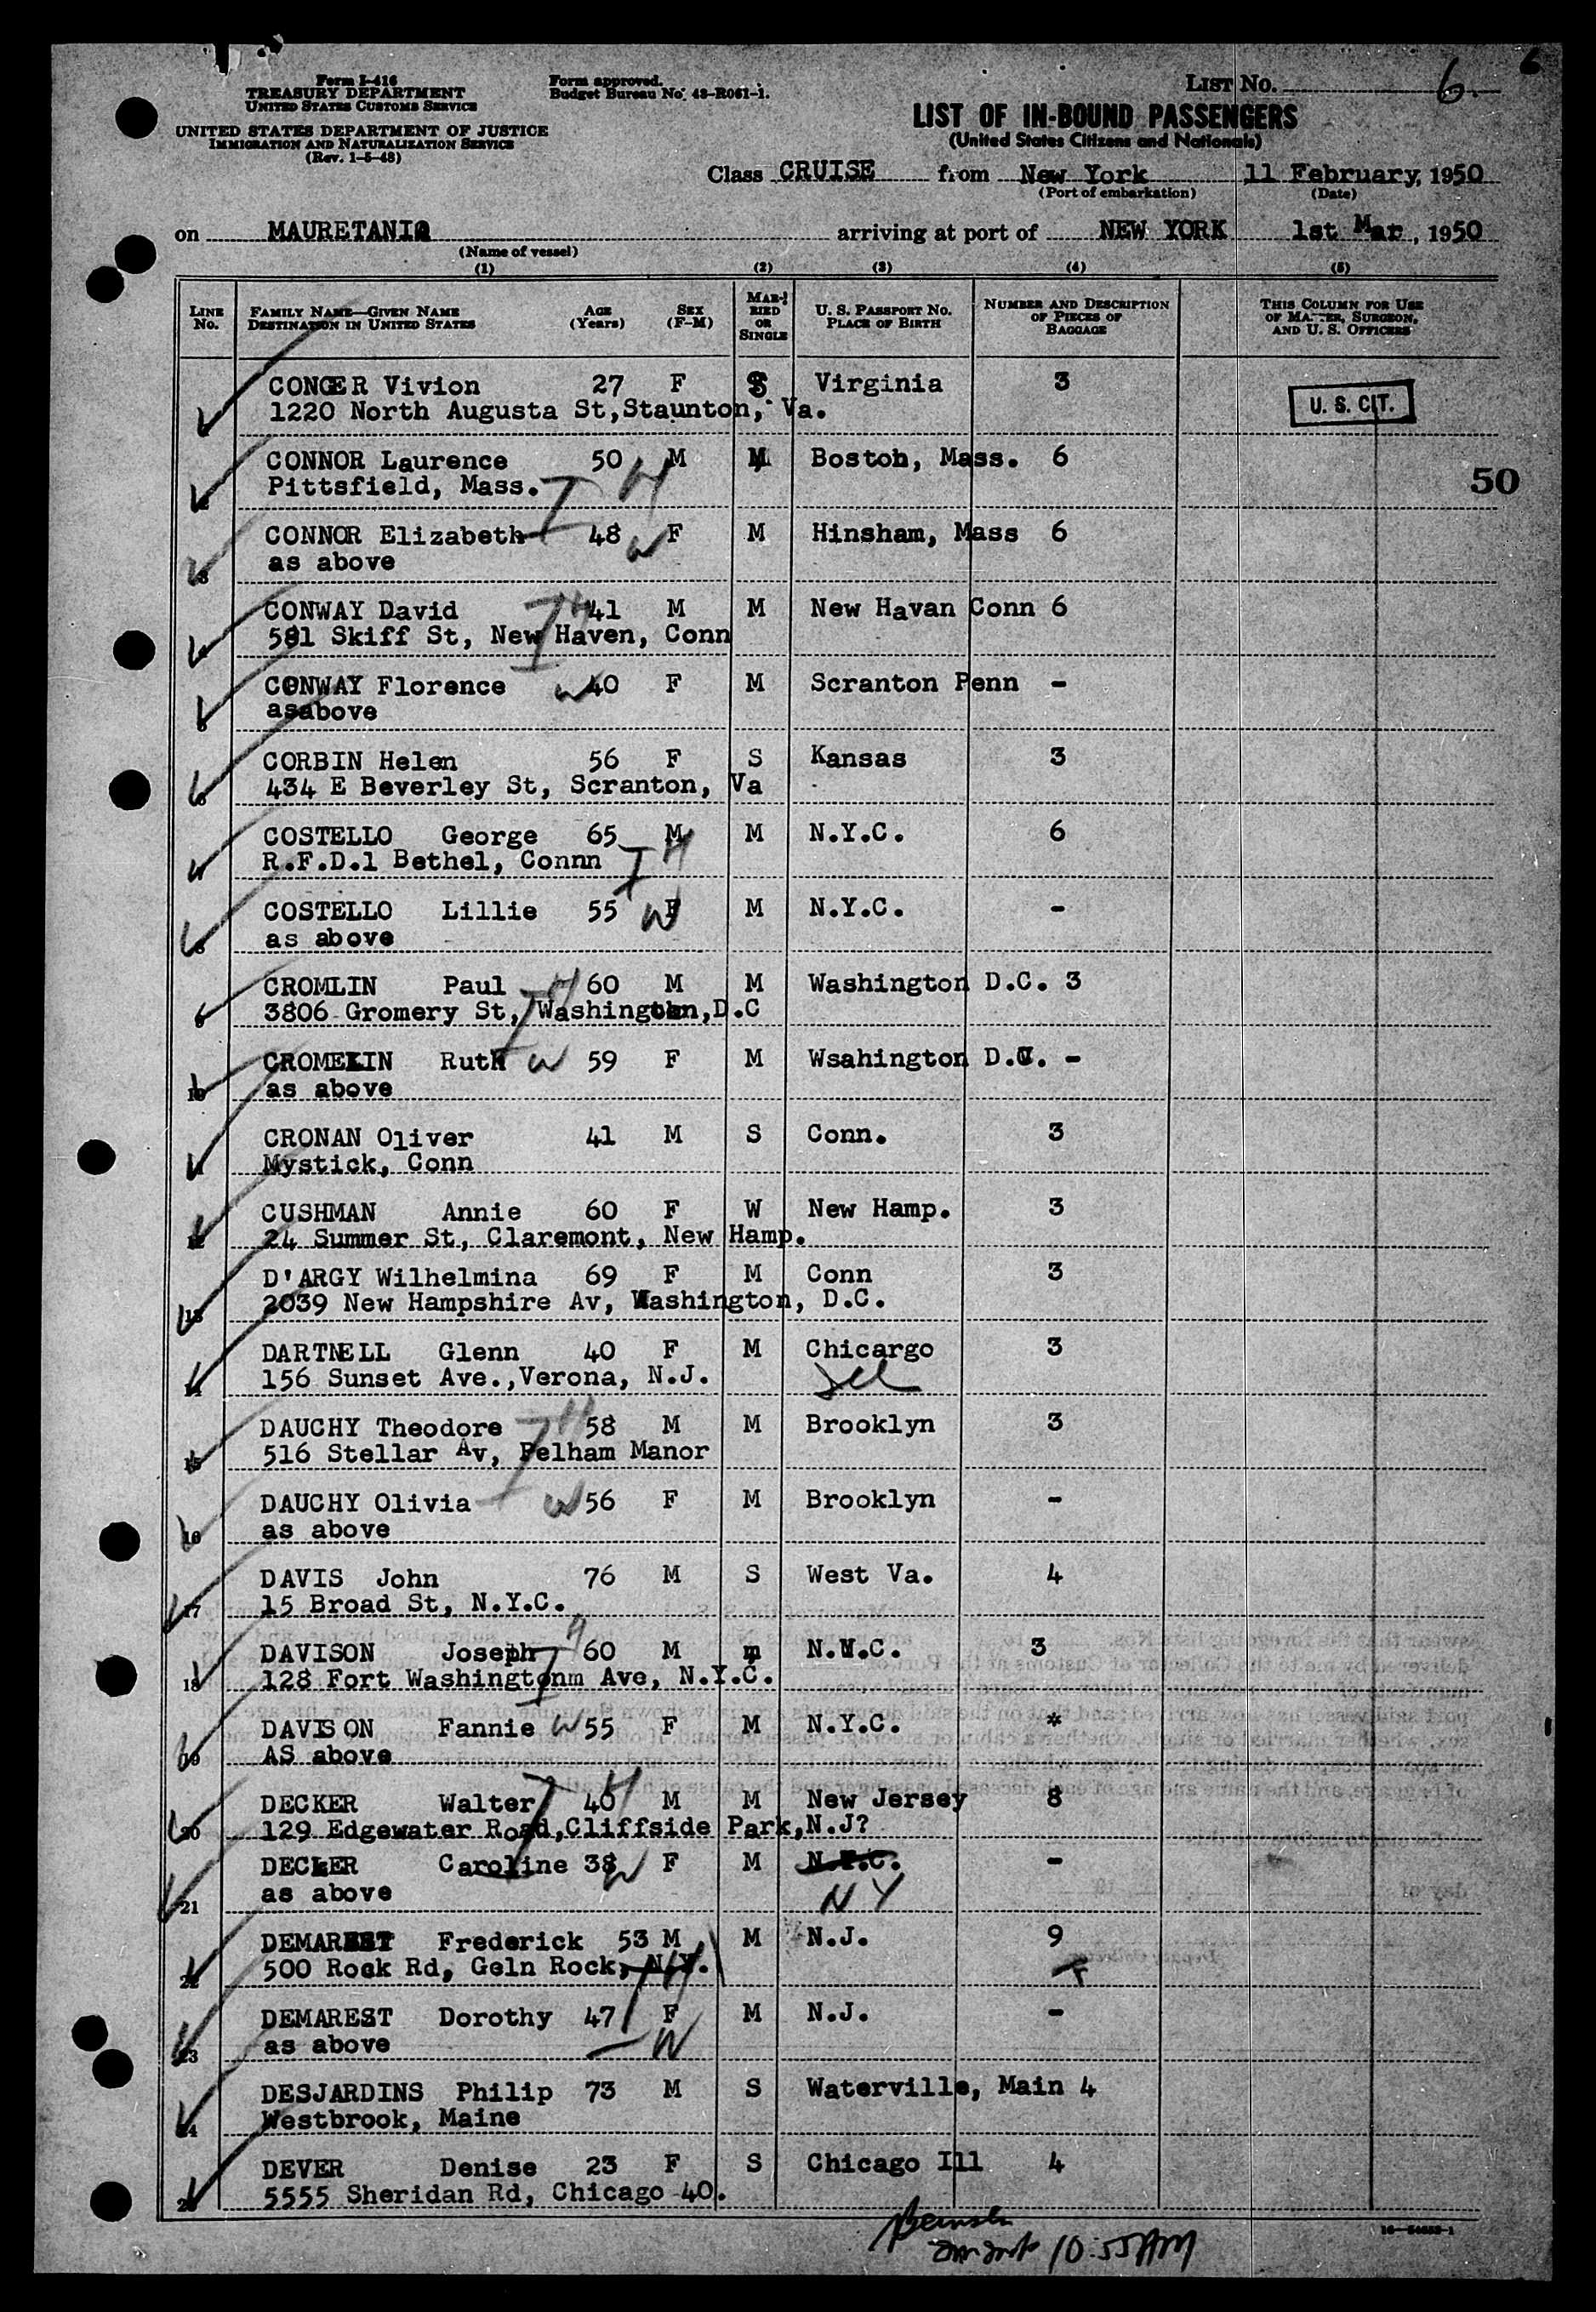 6
Form I-416
TREASURY DEPARTMENT
UNITED STATES CUSTOMS SERVICE
Form approved.
Budget Bureau No. 43-R061-1.
LIST No. 6.
UNITED STATES DEPARTMENT OF JUSTICE
IMMIGRATION AND NATURALIZATION SERVICE
(Rev. 1-5-48)
LIST OF IN-BOUND PASSENGERS
(United States Citizens and Nationals)
Class CRUISE from New York 11 February, 1950
(Port of embarkation) (Date)
on MAURETANIA arriving at port of NEW YORK 1st Mar, 1950
(Name of vessel)
(1) (2) (3) (4) (5)
LINE No. FAMILY NAME—GIVEN NAME DESTINATION IN UNITED STATES AGE (Years) SEX (F-M) MARRIED OR SINGLE U. S. PASSPORT NO. PLACE OF BIRTH NUMBER AND DESCRIPTION OF PIECES OF BAGGAGE THIS COLUMN FOR USE OF MASTER, SURGEON, AND U. S. OFFICERS
CONGER Vivion 27 F S Virginia 3
1220 North Augusta St,Staunton, Va.
U. S. CIT.
CONNOR Laurence 50 M M Boston, Mass. 6
Pittsfield, Mass. H
50
3 CONNOR Elizabeth 48 W F M Hinsham, Mass 6
as above
CONWAY David H 41 M M New Havan Conn 6
581 Skiff St, New Haven, Conn
CONWAY Florence W 40 F M Scranton Penn -
asabove
CORBIN Helen 56 F S Kansas 3
434 E Beverley St, Scranton, Va
COSTELLO George 65 M M N.Y.C. 6
R.F.D.1 Bethel, Connn H
COSTELLO Lillie 55 W F M N.Y.C. -
as above
CROMLIN Paul H 60 M M Washington D.C. 3
3806 Gromery St, Washington,D.C
10 CROMELIN Ruth W 59 F M Wsahington D.C. -
as above
CRONAN Oliver 41 M S Conn. 3
Mystick, Conn
12 CUSHMAN Annie 60 F W New Hamp. 3
24 Summer St, Claremont, New Hamp.
13 D'ARGY Wilhelmina 69 F M Conn 3
2039 New Hampshire Av, Washington, D.C.
14 DARTNELL Glenn 40 F M Chicargo 3
156 Sunset Ave.,Verona, N.J.
15 DAUCHY Theodore H 58 M M Brooklyn 3
516 Stellar Av, Pelham Manor
16 DAUCHY Olivia W 56 F M Brooklyn -
as above
17 DAVIS John 76 M S West Va. 4
15 Broad St, N.Y.C.
18 DAVISON Joseph H 60 M m N.Y.C. 3
128 Fort Washingtonm Ave, N.Y.C.
19 DAVISON Fannie W 55 F M N.Y.C. *
AS above
20 DECKER Walter 40 H M M New Jersey 8
129 Edgewater Road,Cliffside Park,N.J?
21 DECKER Caroline 38 W F M N.Y.C. -
as above NY
22 DEMAREST Frederick 53 M M N.J. 9
500 Rock Rd, Geln Rock, N.Y. H
23 DEMAREST Dorothy 47 F M N.J. -
as above W
24 DESJARDINS Philip 73 M S Waterville, Main 4
Westbrook, Maine
DEVER Denise 23 F S Chicago Ill 4
5555 Sheridan Rd, Chicago 40.
10:55AM